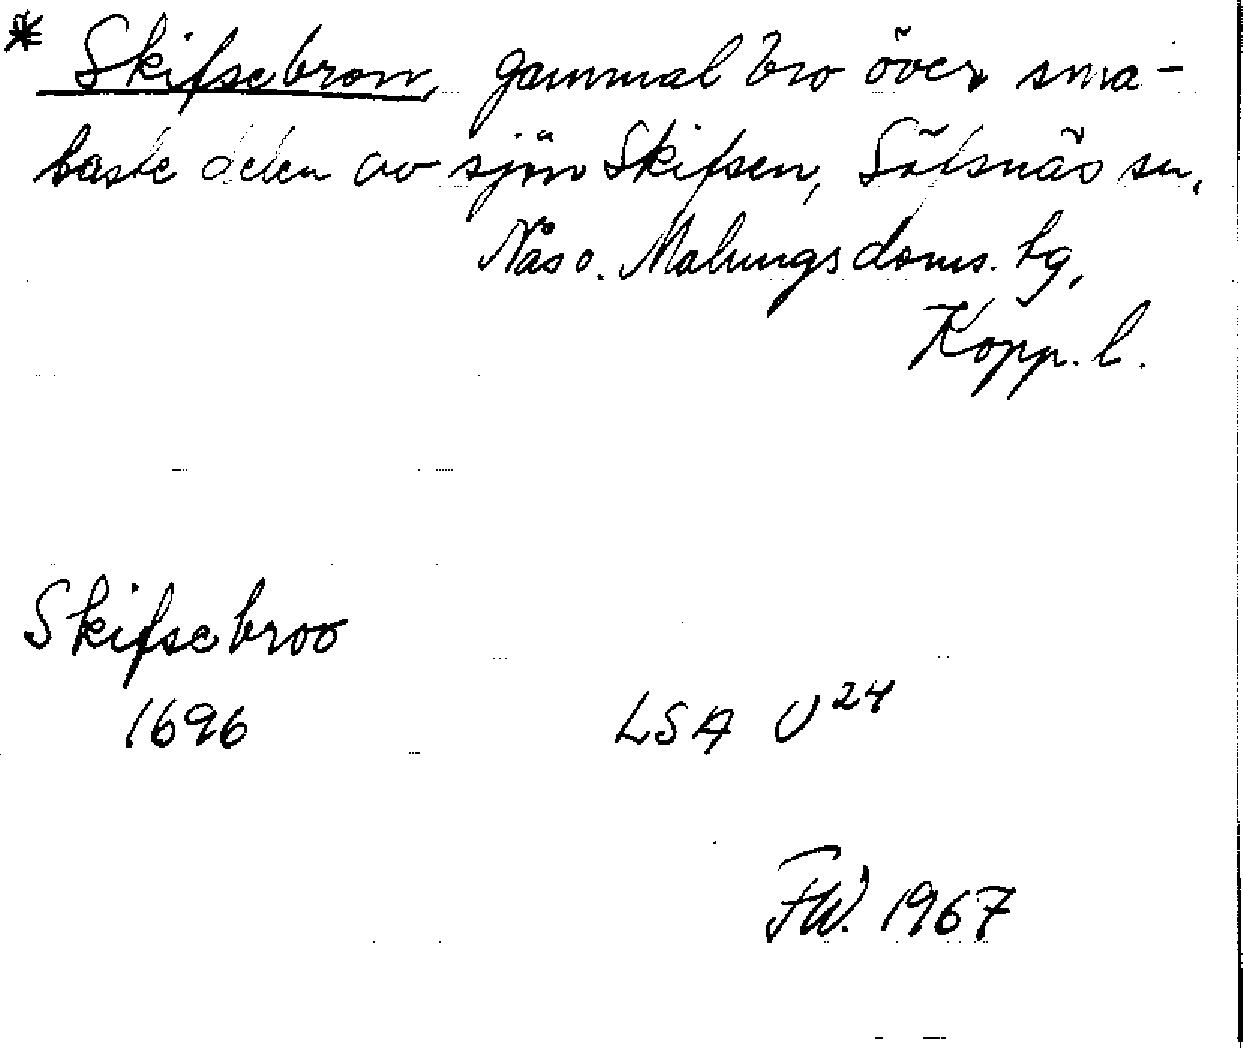 * Skifsebron, gammal bro över sma-
laste delen av sjön Skifsen, Säfsnäs sn,
Näs o. Malungs doms. tg,
Kopp. l.
Skifsebroo
1696 LSA U24
FW. 1967